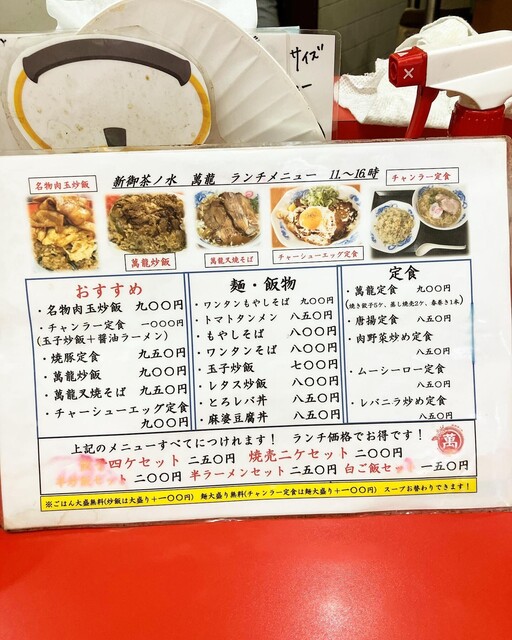 サイズ
名物肉玉炒飯
新御茶ノ水 萬龍 ランチメニュー 11.～16時
チャンラー定食
萬龍炒飯
萬龍叉焼そば
チャーシューエッグ定食
おすすめ
・名物肉玉炒飯 九〇〇円
・チャンラー定食 一〇〇〇円
(玉子炒飯＋醤油ラーメン)
・焼豚定食 九五〇円
・萬龍炒飯 九〇〇円
・萬龍叉焼そば 九五〇円
・チャーシューエッグ定食
九〇〇円
麺・飯物
・ワンタンもやしそば 九〇〇円
・トマトタンメン 八五〇円
・もやしそば 八〇〇円
・ワンタンそば 八〇〇円
・玉子炒飯 七〇〇円
・レタス炒飯 八〇〇円
・とろレバ丼 八五〇円
・麻婆豆腐丼 八五〇円
定食
・萬龍定食 九〇〇円
(焼き餃子5ケ、蒸し焼売2ケ、春巻き1本)
・唐揚定食 八五〇円
・肉野菜炒め定食
八五〇円
・ムーシーロー定食
八五〇円
・レバニラ炒め定食
八五〇円
上記のメニューすべてにつけれます！ ランチ価格でお得です！
四ケセット 二五〇円 焼売二ケセット 二〇〇円
二〇〇円 半ラーメンセット 二五〇円 白ご飯セット 一五〇円
萬
※ごはん大盛無料(炒飯は大盛り＋一〇〇円) 麺大盛り無料(チャンラー定食は麺大盛り＋一〇〇円) スープお替わりできます！